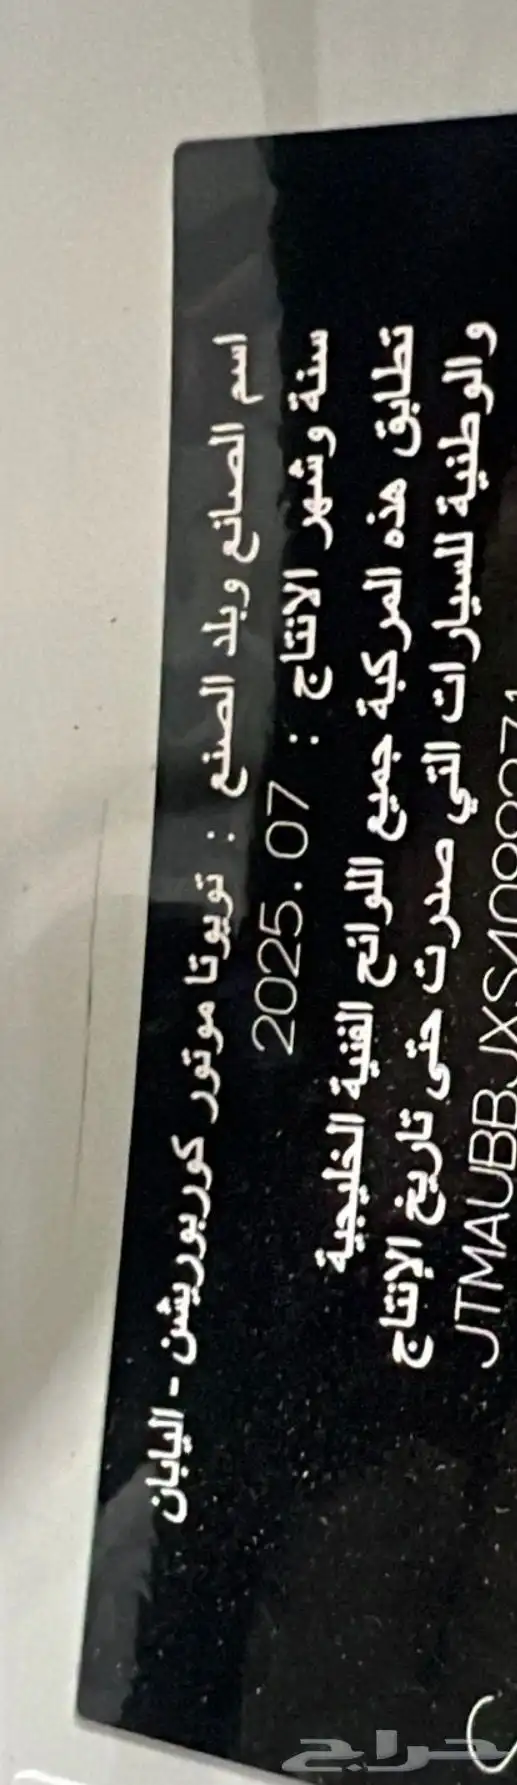 اسم الصانع وبلد الصنع : تويوتا موتور كوربوريشن - اليابان
سنة وشهر الانتاج : 2025.07
تطابق هذه المركبة جميع اللوائح الفنية الخليجية
والوطنية للسيارات التي صدرت حتى تاريخ الإنتاج
حراج